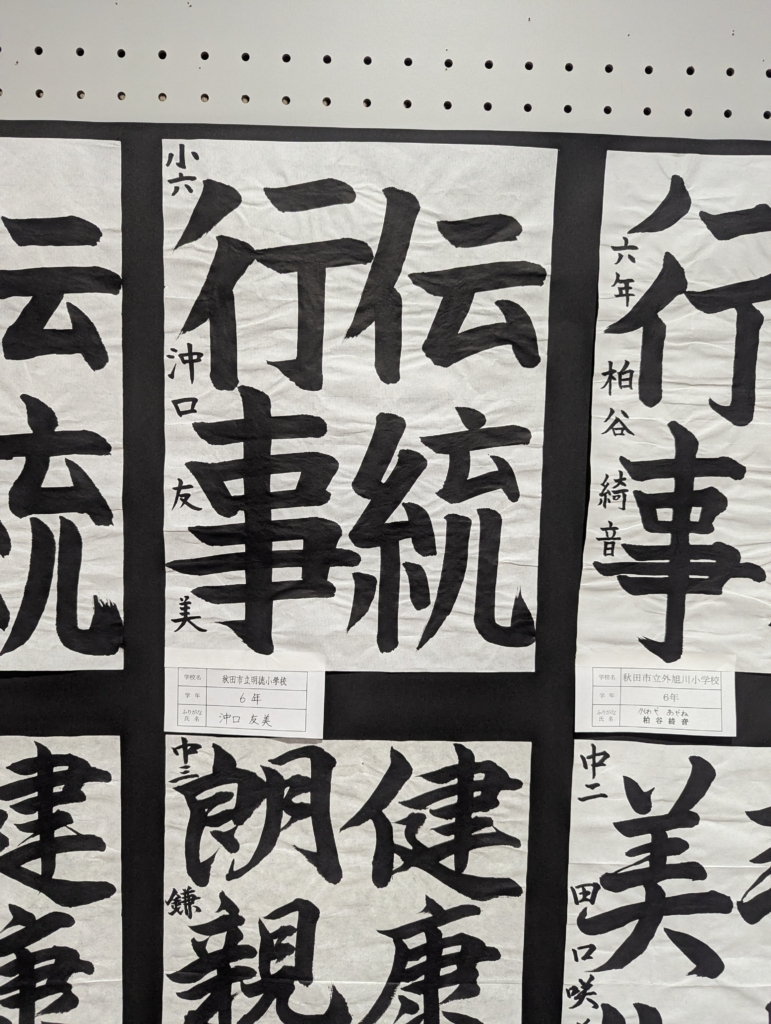 伝統
行事
小六
沖口 友美
学校名 秋田市立明徳小学校
学年 6年
ふりがな
氏名 沖口 友美
行
事
六年
柏谷 綺音
学校名 秋田市立外旭川小学校
学年 6年
ふりがな
氏名 柏谷綺音
云
健康
朗親
中三
鎌
美
中二
田口咲
建
康